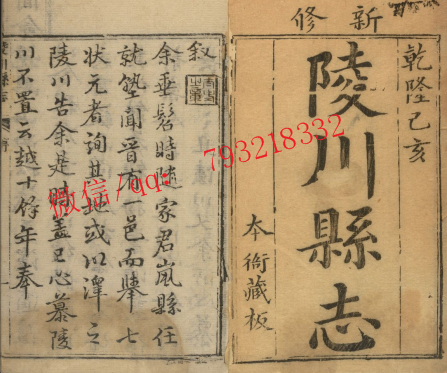 新修
乾隆己亥
陵川縣志
本衙藏板
叙
余垂髫時隨家君嵐縣任
就塾聞晉有一邑而舉七
状元者詢其地或以澤之
陵川告余是時盖已心慕陵
川不置云越十餘年奉
微信/qq: 793218332